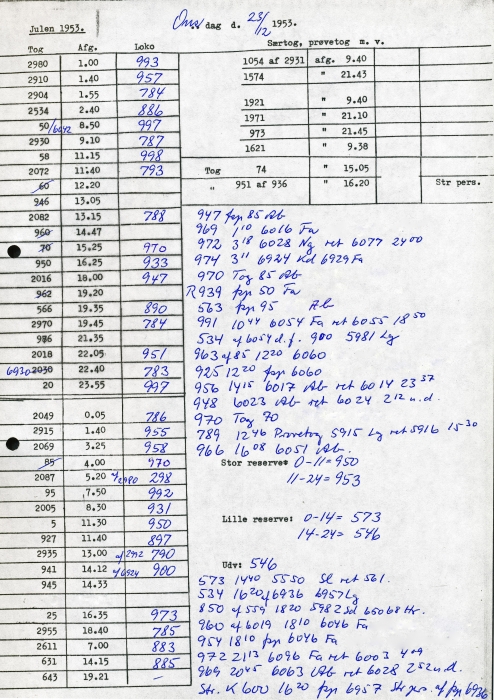 Julen 1953. Onsdag d. 23/12 1953.
Tog Afg. Loko
Særtog, prøvetog m. v.
2980 1.00 993
2910 1.40 957
2904 1.55 784
2534 2.40 886
50/6042 8.50 997
2930 9.10 787
58 11.15 998
2072 11.40 793
60 12.20
946 13.05
2082 13.15 788
960 14.47
70 15.25 970
950 16.25 933
2016 18.00 947
962 19.20
566 19.35 890
2970 19.45 784
976 21.35
2018 22.05 951
6930 2030 22.40 783
20 23.55 997
2049 0.05 786
2915 1.40 955
2069 3.25 958
85 4.00 970
2087 5.20 af 2980 298
95 7.50 992
2005 8.30 931
5 11.30 950
927 11.40 897
2935 13.00 af 2972 790
941 14.12 af 6924 900
945 14.33
25 16.35 973
2955 18.40 785
2611 7.00 883
631 14.15 885
643 19.21 —
1054 af 2931 afg. 9.40
1574 " 21.43
1921 " 9.40
1971 " 21.10
973 " 21.45
1621 " 9.38
Tog 74 " 15.05
" 951 af 936 " 16.20 Str pers.
947 frp 85 Ab
969 1 10 6016 Fa
972 3 18 6028 Ng ret 6077 24 00
974 3 11 6924 Kd 6929 Fa
970 Tog 85 Ab
R 939 frp 50 Fa
563 frp 95 Ab
991 10 44 6054 Fa ret 6055 18 50
534 af 6054 d.f. 900 5981 Lg
963 af 85 12 20 6060
925 12 20 frp 6060
956 14 15 6017 Ab ret 6014 23 37
948 6023 Ab ret 6024 2 12 n.d.
970 Tog 70
789 12 46 Prøvetog 5915 Lg ret 5916 15 30
966 16 08 6051 Ab.
Stor reserve: 0-11=950
11-24=953
Lille reserve: 0-14= 573
14-24= 546
Udv: 546
573 14 40 5550 Sl ret 561.
534 16 20 af 6936 6957 Lg
850 af 559 18 20 5982 Sd 6506 8 Hr.
960 af 6019 18 10 6046 Fa
954 18 10 frp 6046 Fa
972 21 13 6096 Fa ret 6003 4 09
969 20 45 6063 Ab ret 6028 2 52 n.d.
Str. K 600 16 20 frp 6957 Str